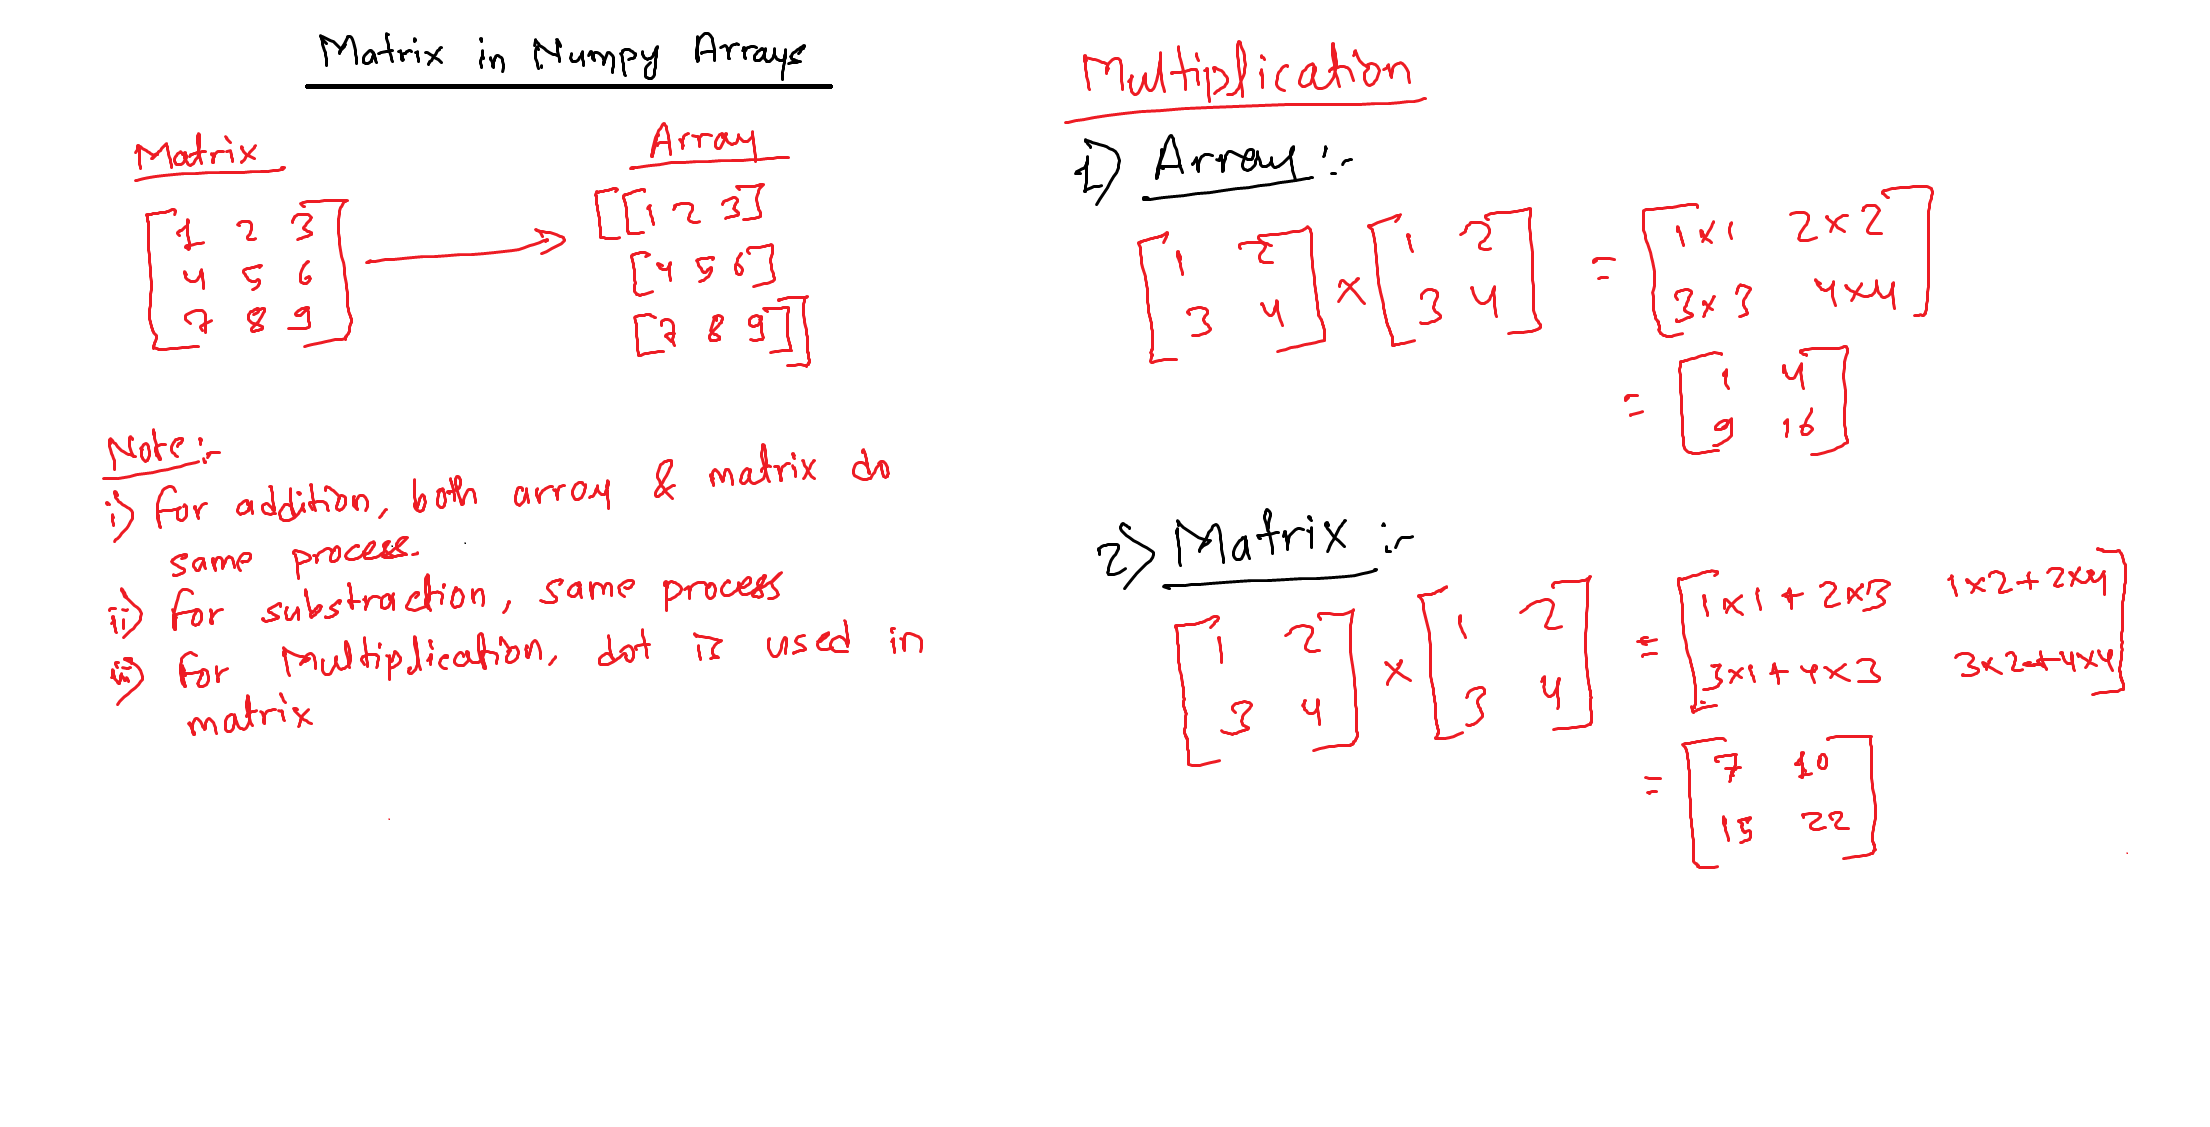 Matrix in Numpy Arrays
Matrix
Array
1 2 3
4 5 6
7 8 9
[[1 2 3]
[4 5 6]
[7 8 9]]
Note:-
i) for addition, both array & matrix do
same process.
ii) for substraction, same process
iii) for Multiplication, dot is used in
matrix
Multiplication
1) Array :-
[1 2 × [1 2 = [1×1 2×2
3 4] 3 4] 3×3 4×4]
= [1 4
9 16]
2) Matrix :-
[1 2 × [1 2 = [1×1+2×3 1×2+2×4
3 4] 3 4] 3×1+4×3 3×2+4×4]
= [7 10
15 22]